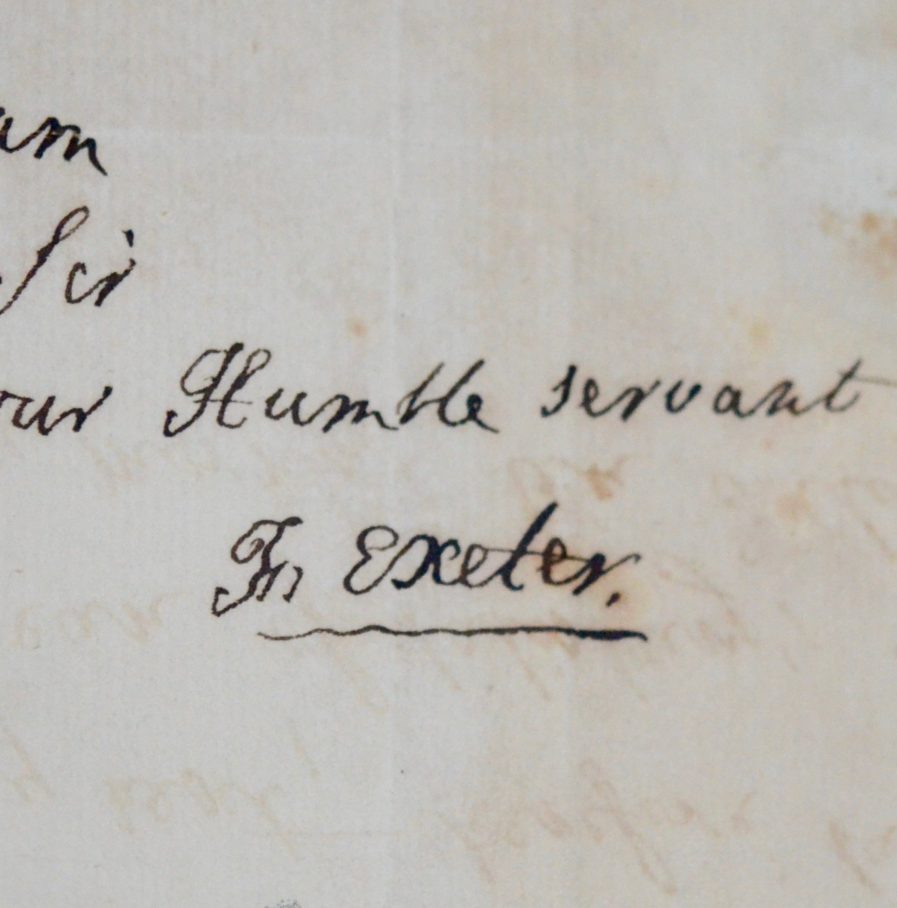 am
Sir
our Humble servant
Fn Exeter.